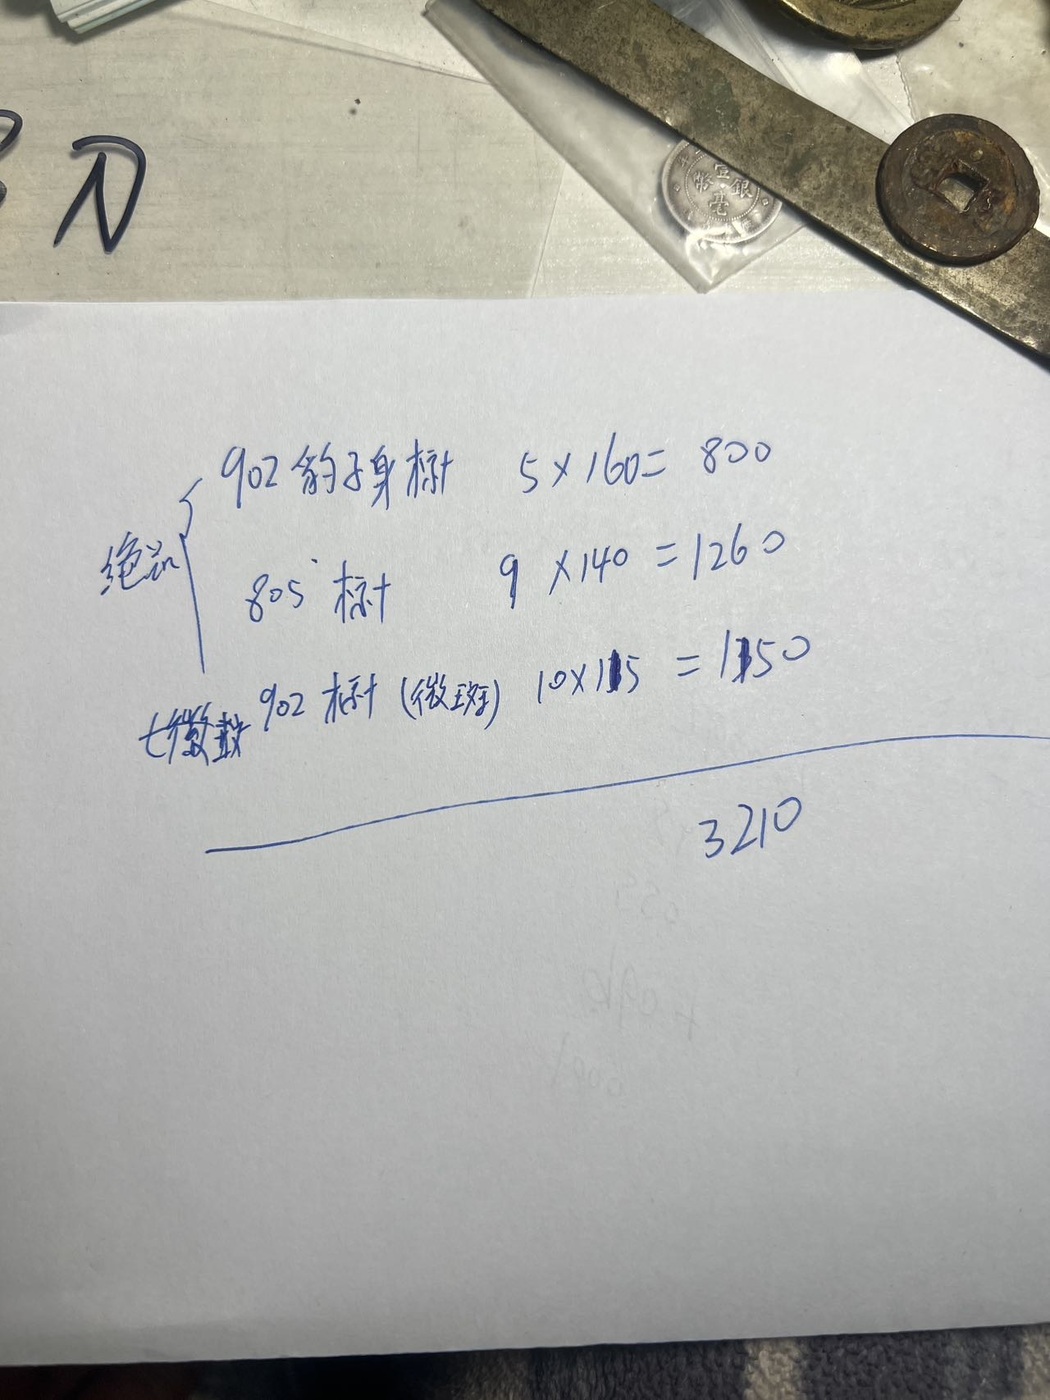 N
902 豹子身标十 5×160=800
绝品
805 标十 9×140=1260
902 标十 (微斑) 10×115=1150
七微
3210